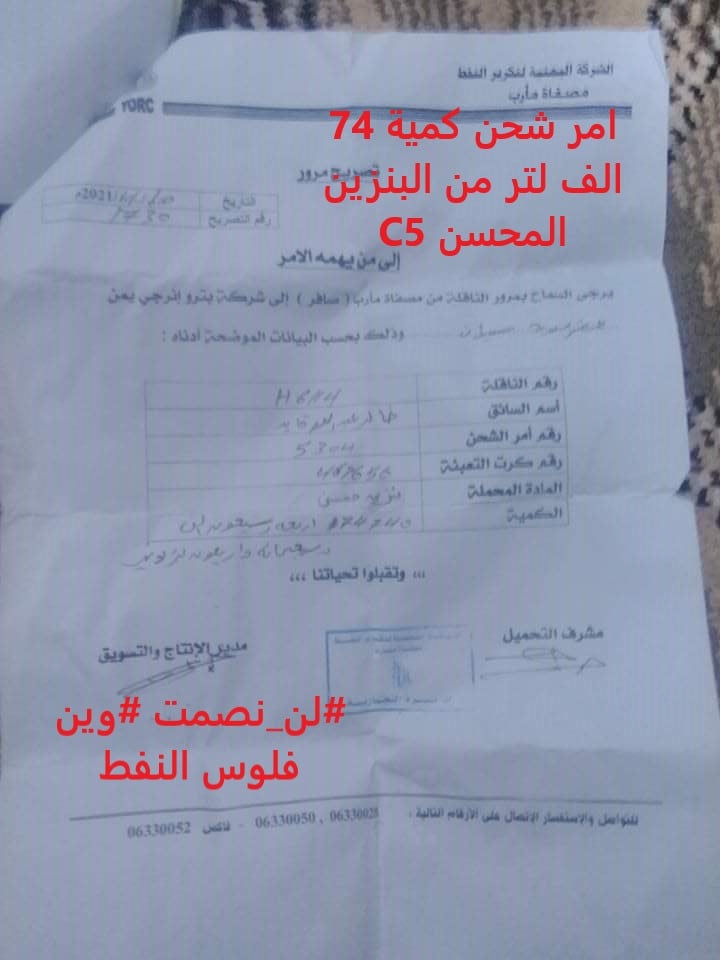 الشركة اليمنية لتكرير النفط
مصفاة مأرب
YORC
امر شحن كمية 74
الف لتر من البنزين
المحسن C5
تصريح مرور
التاريخ 2021/م
رقم التصريح 1730
إلى من يهمه الامر
يرجى السماح بمرور الناقلة من مصفاة مأرب ( صافر ) إلى شركة بترو إنرجي يمن
وذلك بحسب البيانات الموضحة أدناه :
رقم الناقلة
أسم السائق
رقم أمر الشحن 5304
رقم كرت التعبئة
المادة المحملة بنزين محسن
الكمية اربعه وسبعون الف
وسبعمائه واربعون لتر
،،، وتقبلوا تحياتنا ،،،
مشرف التحميل
مدير الإنتاج والتسويق
#لن_نصمت #وين
فلوس النفط
للتواصل والإستفسار الإتصال على الأرقام التالية : 06330028 , 06330050 - فاكس 06330052